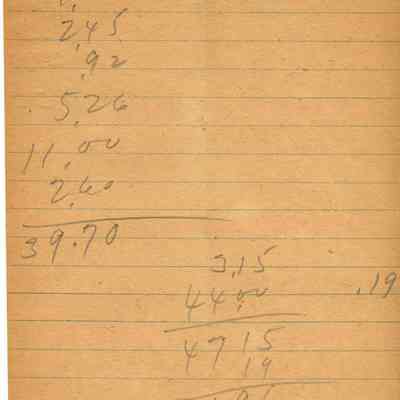 2,45
,92
5,26
11,00
2,60
39.70
3,15
44,00
.19
4715
19